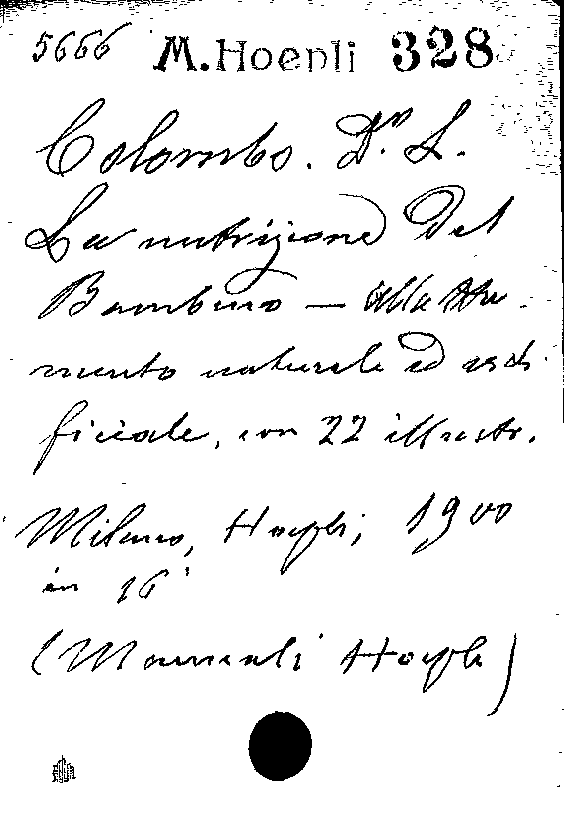 5666 M. Hoepli 328
Colombo. Dr. L.
La nutrizione del
Bambino — Allatta-
mento naturale ed arti-
ficiale, con 22 illustr.
Milano, Hoepli, 1900
in 16°
(Manuali Hoepli)